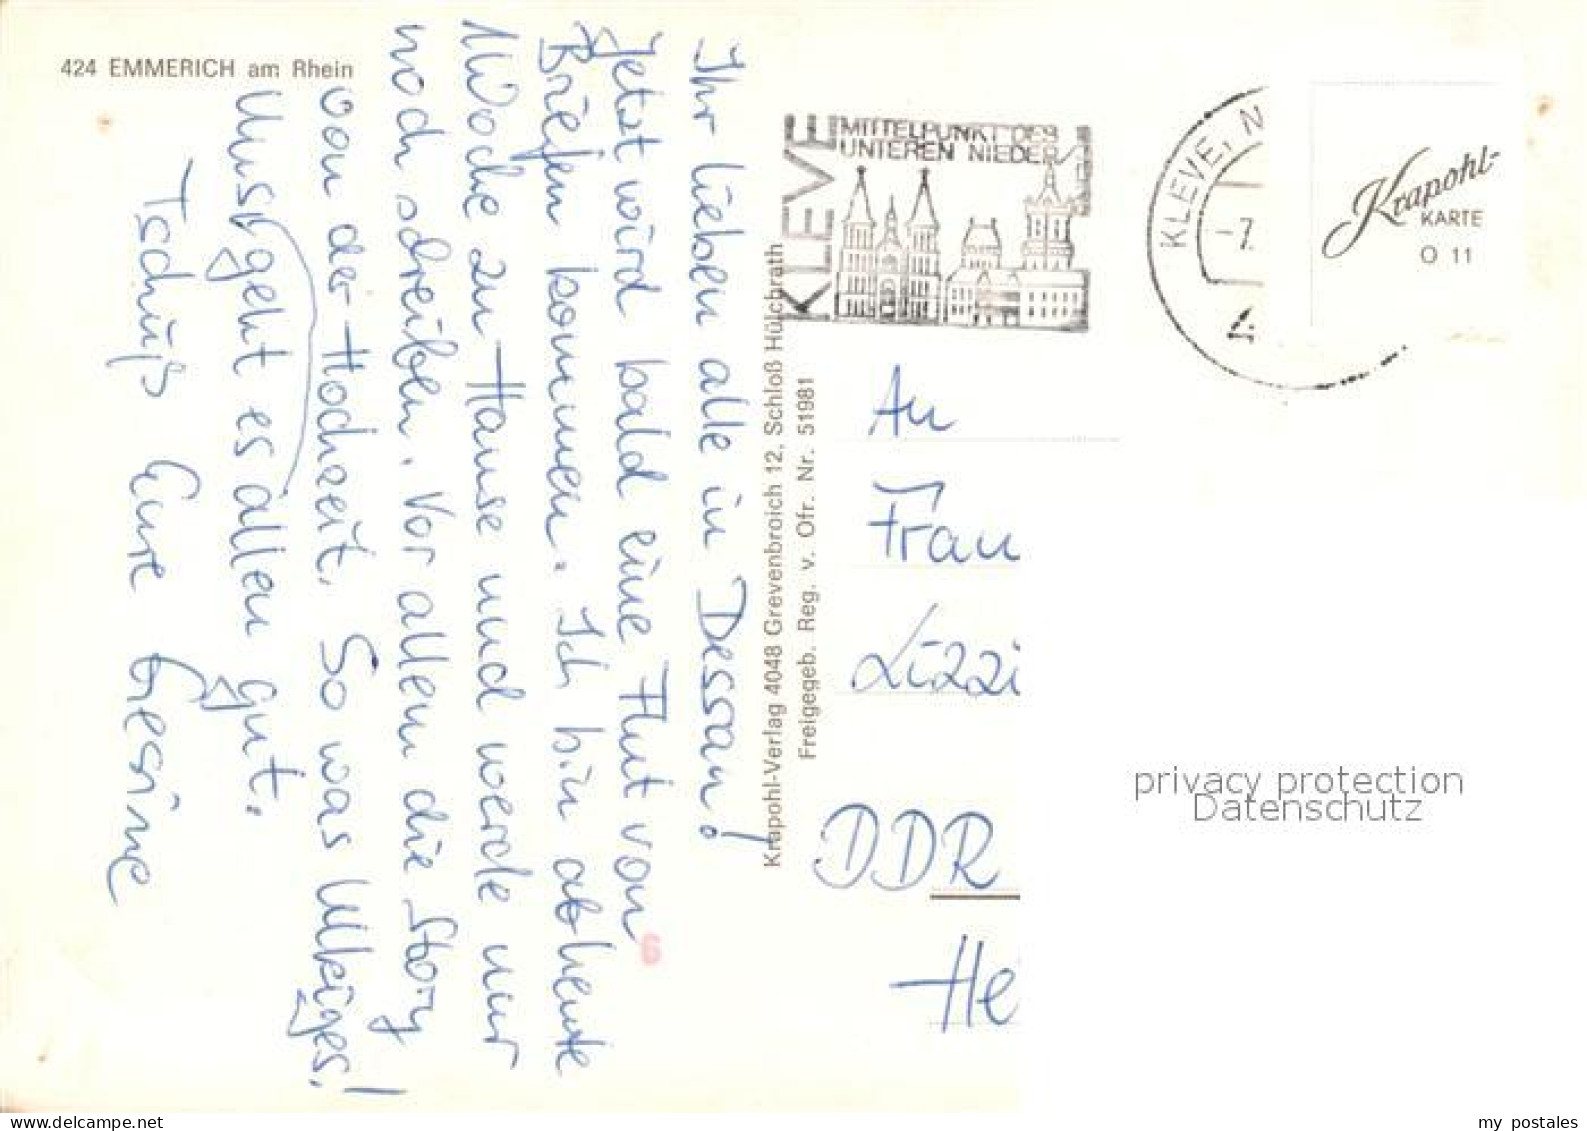 424 EMMERICH am Rhein
Ihr lieben alle in Dessau!
Jetzt wird bald eine Flut von
Briefen kommen. Ich bin ab heute
1 Woche zu Hause und werde nur
noch schreiben. Vor allem die Story
von der Hochzeit. So was Ulkiges!
Uns geht es allen gut.
Tschüß Eure Gesine
Krapohl-Verlag 4048 Grevenbroich 12, Schloß Hülchrath
Freigegeb. Reg. v. Ofr. Nr. 51981
KLEVE
MITTELPUNKT DES
UNTEREN NIEDER
KLEVE, N
-7.
4
Krapohl-
KARTE
O 11
An
Frau
Lizzi
DDR
He
6
privacy protection
Datenschutz
my postales